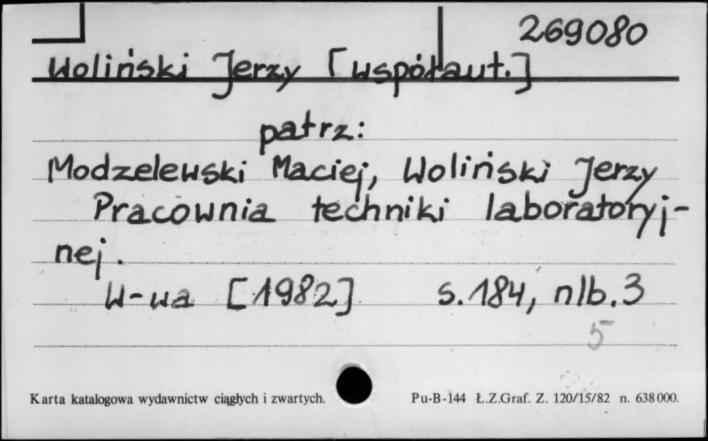 269080
Woliński Jerzy [współaut.]
patrz:
Modzelewski Maciej, Woliński Jerzy
Pracownia techniki laboratoryj-
nej.
W-wa [1982] s. 184, nlb. 3
5
Karta katalogowa wydawnictw ciągłych i zwartych. Pu-B-144 Ł.Z.Graf. Z. 120/15/82 n. 638000.